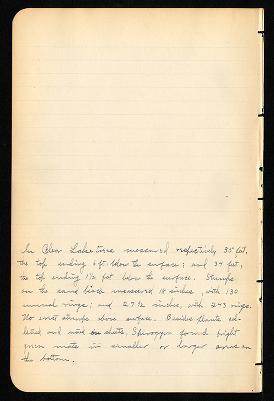 In Clear Lake trees measured respectively 35 feet,
the top ending 6 ft. below the surface; and 34 feet,
the top ending 1½ feet below the surface. Stumps
on the sand beach measured 18 inches, with 130
annual rings; and 27½ inches, with 243 rings.
No erect stumps above surface. Besides plants col-
lected and noted on sheets, Spirogyra found bright
green mats in smaller or larger areas on
the bottom.